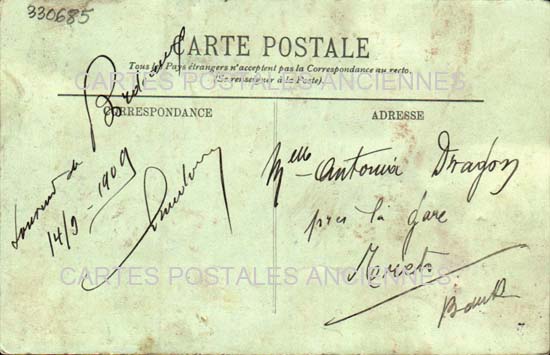 330685
CARTE POSTALE
Tous les Pays étrangers n'acceptent pas la Correspondance au recto.
(Se renseigner à la Poste)
CARTES POSTALES ANCIENNES
CORRESPONDANCE
ADRESSE
Souvenir de
14/9-1909
Melle Antonia Dragon
près la gare
CARTES POSTALES ANCIENNES